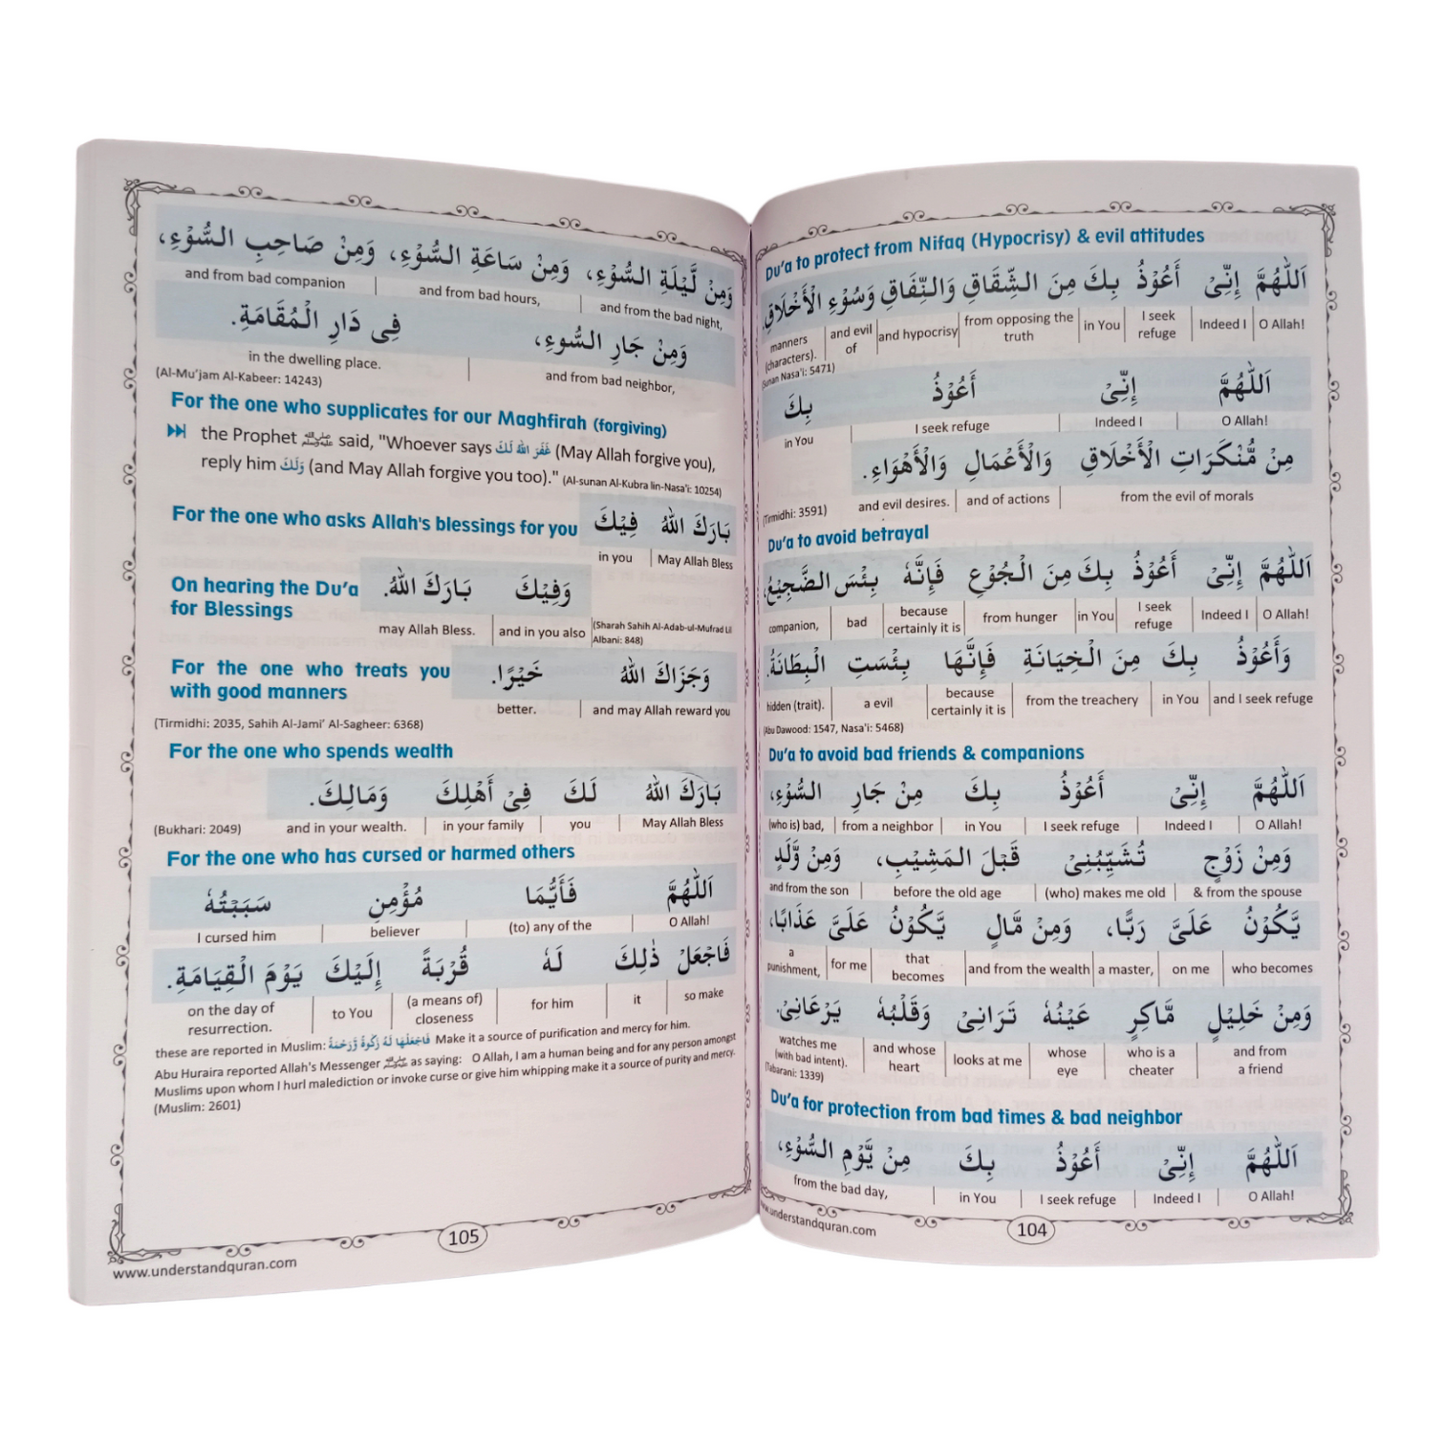 Du'a to protect from Nifaq (Hypocrisy) & evil attitudes
اَللّٰهُمَّ اِنِّيْ أَعُوْذُ بِكَ مِنَ الشِّقَاقِ وَالنِّفَاقِ وَسُوْءِ الْأَخْلَاقِ
O Allah! Indeed I I seek refuge in You from opposing the truth and hypocrisy and evil of manners (characters).
(Sunan Nasa'i: 5471)
اَللّٰهُمَّ إِنِّيْ أَعُوْذُ بِكَ
O Allah! Indeed I I seek refuge in You
مِنْ مُّنْكَرَاتِ الْأَخْلَاقِ وَالْأَعْمَالِ وَالْأَهْوَاءِ.
from the evil of morals and of actions and evil desires.
(Tirmidhi: 3591)
Du'a to avoid betrayal
اَللّٰهُمَّ إِنِّيْ أَعُوْذُ بِكَ مِنَ الْجُوْعِ فَإِنَّهٗ بِئْسَ الضَّجِيْعُ،
O Allah! Indeed I I seek refuge in You from hunger because certainly it is bad companion,
وَأَعُوْذُ بِكَ مِنَ الْخِيَانَةِ فَإِنَّهَا بِئْسَتِ الْبِطَانَةُ.
and I seek refuge in You from the treachery because certainly it is a evil hidden (trait).
(Abu Dawood: 1547, Nasa'i: 5468)
Du'a to avoid bad friends & companions
اَللّٰهُمَّ إِنِّيْ أَعُوْذُ بِكَ مِنْ جَارِ السُّوْءِ،
O Allah! Indeed I I seek refuge in You from a neighbor (who is) bad,
وَمِنْ زَوْجٍ تُشَيِّبُنِيْ قَبْلَ الْمَشِيْبِ، وَمِنْ وَّلَدٍ
& from the spouse (who) makes me old before the old age and from the son
يَّكُوْنُ عَلَيَّ رَبًّا، وَمِنْ مَّالٍ يَّكُوْنُ عَلَيَّ عَذَابًا،
who becomes on me a master, and from the wealth that becomes for me a punishment,
وَمِنْ خَلِيْلٍ مَّاكِرٍ عَيْنُهٗ تَرَانِيْ وَقَلْبُهٗ يَرْعَانِيْ.
and from a friend who is a cheater whose eye looks at me and whose heart watches me (with bad intent).
(Tabarani: 1339)
Du'a for protection from bad times & bad neighbor
اَللّٰهُمَّ إِنِّيْ أَعُوْذُ بِكَ مِنْ يَّوْمِ السُّوْءِ،
O Allah! Indeed I I seek refuge in You from the bad day,
www.understandquran.com
104
وَمِنْ لَّيْلَةِ السُّوْءِ، وَمِنْ سَاعَةِ السُّوْءِ، وَمِنْ صَاحِبِ السُّوْءِ،
and from the bad night, and from bad hours, and from bad companion
وَمِنْ جَارِ السُّوءِ، فِي دَارِ الْمُقَامَةِ.
and from bad neighbor, in the dwelling place.
(Al-Mu'jam Al-Kabeer: 14243)
For the one who supplicates for our Maghfirah (forgiving)
the Prophet ﷺ said, "Whoever says غَفَرَ اللهُ لَكَ (May Allah forgive you),
reply him وَلَكَ (and May Allah forgive you too)." (Al-sunan Al-Kubra lin-Nasa'i: 10254)
For the one who asks Allah's blessings for you بَارَكَ اللهُ فِيْكَ
May Allah Bless in you
On hearing the Du'a for Blessings
وَفِيْكَ بَارَكَ اللهُ.
and in you also may Allah Bless.
(Sharah Sahih Al-Adab-ul-Mufrad Lil Albani: 848)
For the one who treats you with good manners
وَجَزَاكَ اللهُ خَيْرًا.
and may Allah reward you better.
(Tirmidhi: 2035, Sahih Al-Jami' Al-Sagheer: 6368)
For the one who spends wealth
بَارَكَ اللهُ لَكَ فِيْ أَهْلِكَ وَمَالِكَ.
May Allah Bless you in your family and in your wealth.
(Bukhari: 2049)
For the one who has cursed or harmed others
اَللّٰهُمَّ فَأَيُّمَا مُؤْمِنٍ سَبَبْتُهٗ
O Allah! (to) any of the believer I cursed him
فَاجْعَلْ ذٰلِكَ لَهٗ قُرْبَةً إِلَيْكَ يَوْمَ الْقِيَامَةِ.
so make it for him (a means of) closeness to You on the day of resurrection.
these are reported in Muslim: فَاجْعَلْهَا لَهُ زَكٰوةً وَّرَحْمَةً Make it a source of purification and mercy for him.
Abu Huraira reported Allah's Messenger ﷺ as saying: O Allah, I am a human being and for any person amongst
Muslims upon whom I hurl malediction or invoke curse or give him whipping make it a source of purity and mercy.
(Muslim: 2601)
105
www.understandquran.com